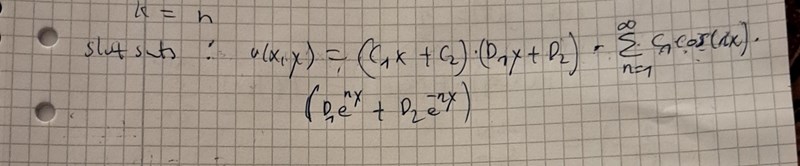 k = n
slutsats : u(x,y) = (C₁x + C₂)·(D₁y + D₂) · ∑_{n=1}^{∞} Cₙ cos(nx)·
(D₁e^{ny} + D₂e^{-ny})